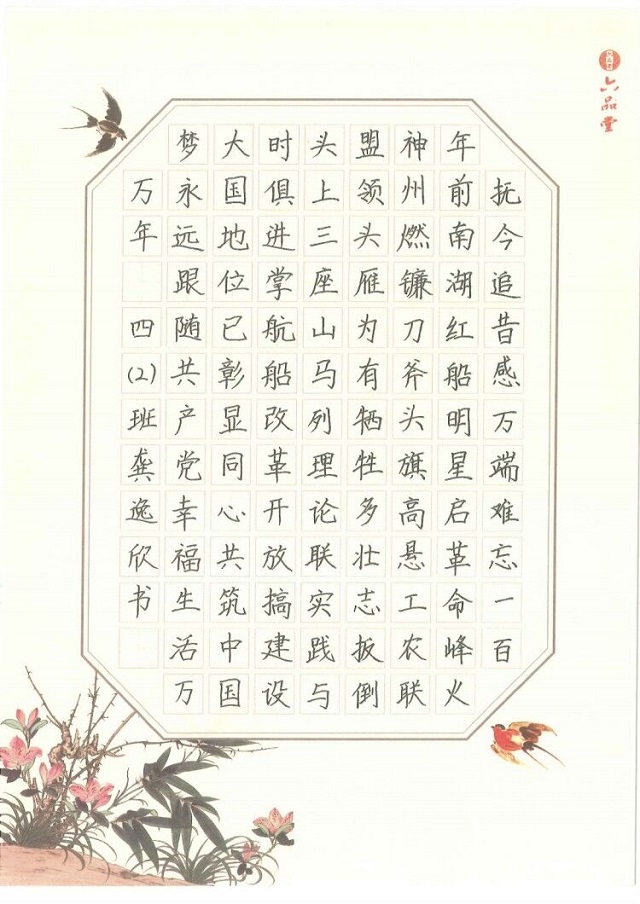 抚今追昔感万端难忘一百
年前南湖红船明星启革命峰火
神州燃镰刀斧头旗高悬工农联
盟领头雁为有牺牲多壮志扳倒
头上三座山马列理论联实践与
时俱进掌航船改革开放搞建设
大国地位已彰显同心共筑中国
梦永远跟随共产党幸福生活万
万年 四(2)班龚逸欣书
六品堂